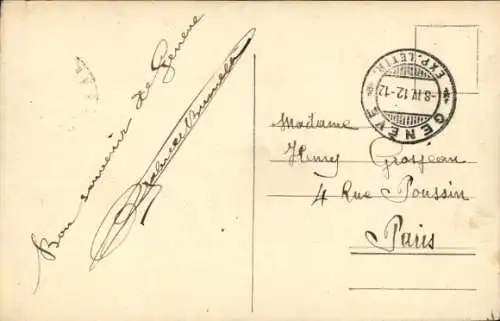 Bon souvenir de Genève
GENÈVE
EXP. LETTR.
-8.IV.12-12
Madame
Henry Grosjean
4 Rue Poussin
Paris